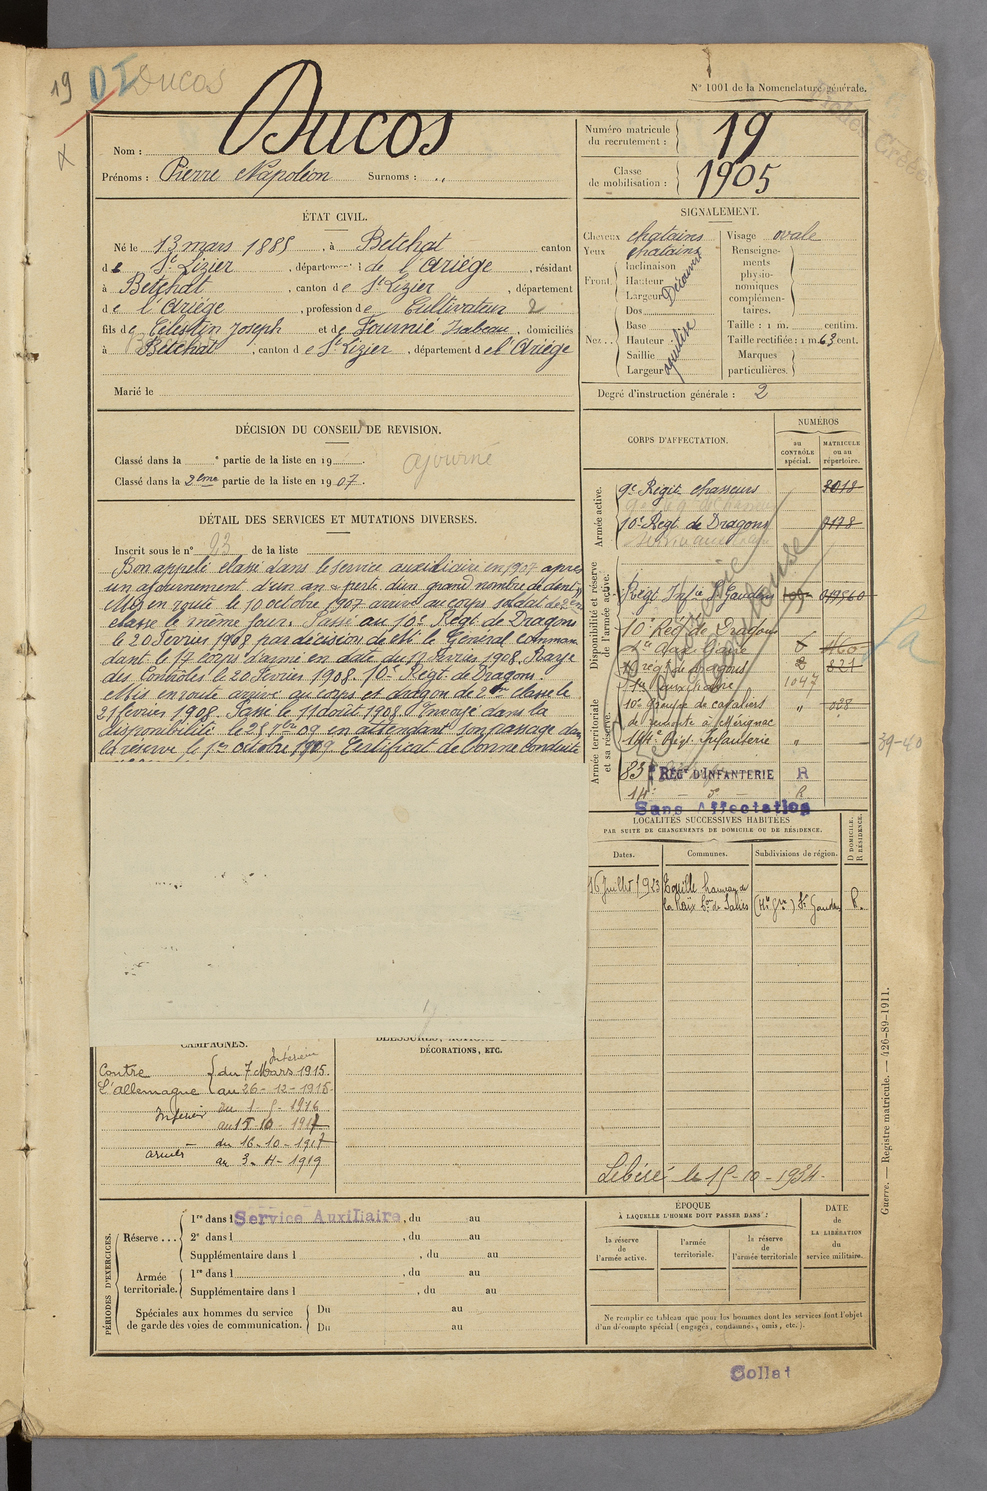 19 DI Ducos
N° 1001 de la Nomenclature générale.
Nom : Ducos
Prénoms : Pierre Napoléon Surnoms : „
Numéro matricule du recrutement : 19
Classe de mobilisation : 1905
ÉTAT CIVIL.
Né le 13 mars 1885, à Betchat canton
de St Lizier, département de l'Ariège, résidant
à Betchat, canton de St Lizier, département
de l'Ariège, profession de Cultivateur 2
fils de Célestin Joseph et de Fournié Isabeau, domiciliés
à Betchat, canton de St Lizier, département de l'Ariège
Marié le
SIGNALEMENT.
Cheveux chatains Visage ovale
Yeux chatains
Front. Inclinaison
Hauteur
Largeur
Découvert
Nez.. Dos
Base
Hauteur
Saillie
Largeur
aquilin
Renseignements physionomiques complémentaires.
Taille : 1 m. centim.
Taille rectifiée : 1 m. 63 cent.
Marques particulières.
Degré d'instruction générale : 2
DÉCISION DU CONSEIL DE REVISION.
Classé dans la e partie de la liste en 19 ajourné
Classé dans la 2eme partie de la liste en 1907.
DÉTAIL DES SERVICES ET MUTATIONS DIVERSES.
Inscrit sous le n° 23 de la liste
Bon appelé classé dans le service auxiliaire en 1907 après
un ajournement d'un an « perte d'un grand nombre de dents »
Mis en route le 10 octobre 1907 arrivé au corps soldat de 2e
classe le même jour. Passé au 10e Régt de Dragons
le 20 Février 1908 par décision de M. le Général Comman
dant le 17 Corps d'armé en date du 17 Février 1908. Rayé
des Contrôles le 20 Février 1908. 10e Régt de Dragons.
Mis en route arrivé au corps et dragon de 2me classe le
21 février 1908. Passé le 11 août 1908. Envoyé dans la
disponibilité le 25 7bre 09 en attendant son passage dans
la réserve le 1er octobre 1909 Certificat de bonne conduite
CORPS D'AFFECTATION.
NUMÉROS
au CONTRÔLE spécial.
MATRICULE ou au répertoire.
Armée active.
9e Régit chasseurs 3018
10e Regt de Dragons 0178
Disponibilité et réserve de l'armée active.
Régt Infie St Gaudens
10e Rég de Dragons
821
1047
Armée territoriale et sa réserve.
10e Groupe de cavaliers „ 028
de remonte à Mérignac
144e Régt Infanterie „
39-40
83e RÉGt D'INFANTERIE R
14e R
Sans Affectation
LOCALITÉS SUCCESSIVES HABITÉES
PAR SUITE DE CHANGEMENTS DE DOMICILE OU DE RÉSIDENCE.
D DOMICILE. R RÉSIDENCE.
Dates. Communes. Subdivisions de région.
16 Juillet 1923 (Hte Gne) St Gaudens R.
CAMPAGNES.
Contre L'allemagne
Intérieur
du 7 Mars 1915.
au 26-12-1915
Intérieur
du 1-5-1916
au 15 10-1917
armées
du 16-10-1917
au 3-4-1919
DÉCORATIONS, ETC.
Libéré le 15-10-1934.
PÉRIODES D'EXERCICES.
Réserve... 1re dans l Service Auxiliaire, du au
2e dans l , du au
Supplémentaire dans l , du au
Armée territoriale. 1re dans l , du au
Supplémentaire dans l , du au
Spéciales aux hommes du service de garde des voies de communication. Du au
Du au
ÉPOQUE
À LAQUELLE L'HOMME DOIT PASSER DANS :
la réserve de l'armée active.
l'armée territoriale.
la réserve de l'armée territoriale
DATE de LA LIBÉRATION du service militaire.
Ne remplir ce tableau que pour les hommes dont les services font l'objet
d'un décompte spécial (engagés, condamnés, omis, etc.).
Guerre. — Registre matricule. — 426-89-1911.
Collat